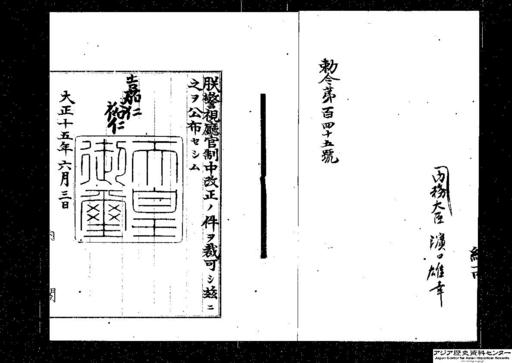 勅令第百四十五號
内務大臣 濱口雄幸
朕警視廳官制中改正ノ件ヲ裁可シ茲ニ
之ヲ公布セシム
嘉仁
裕仁
天皇御璽
大正十五年六月三日
内閣
アジア歴史資料センター
Japan Center for Asian Historical Records